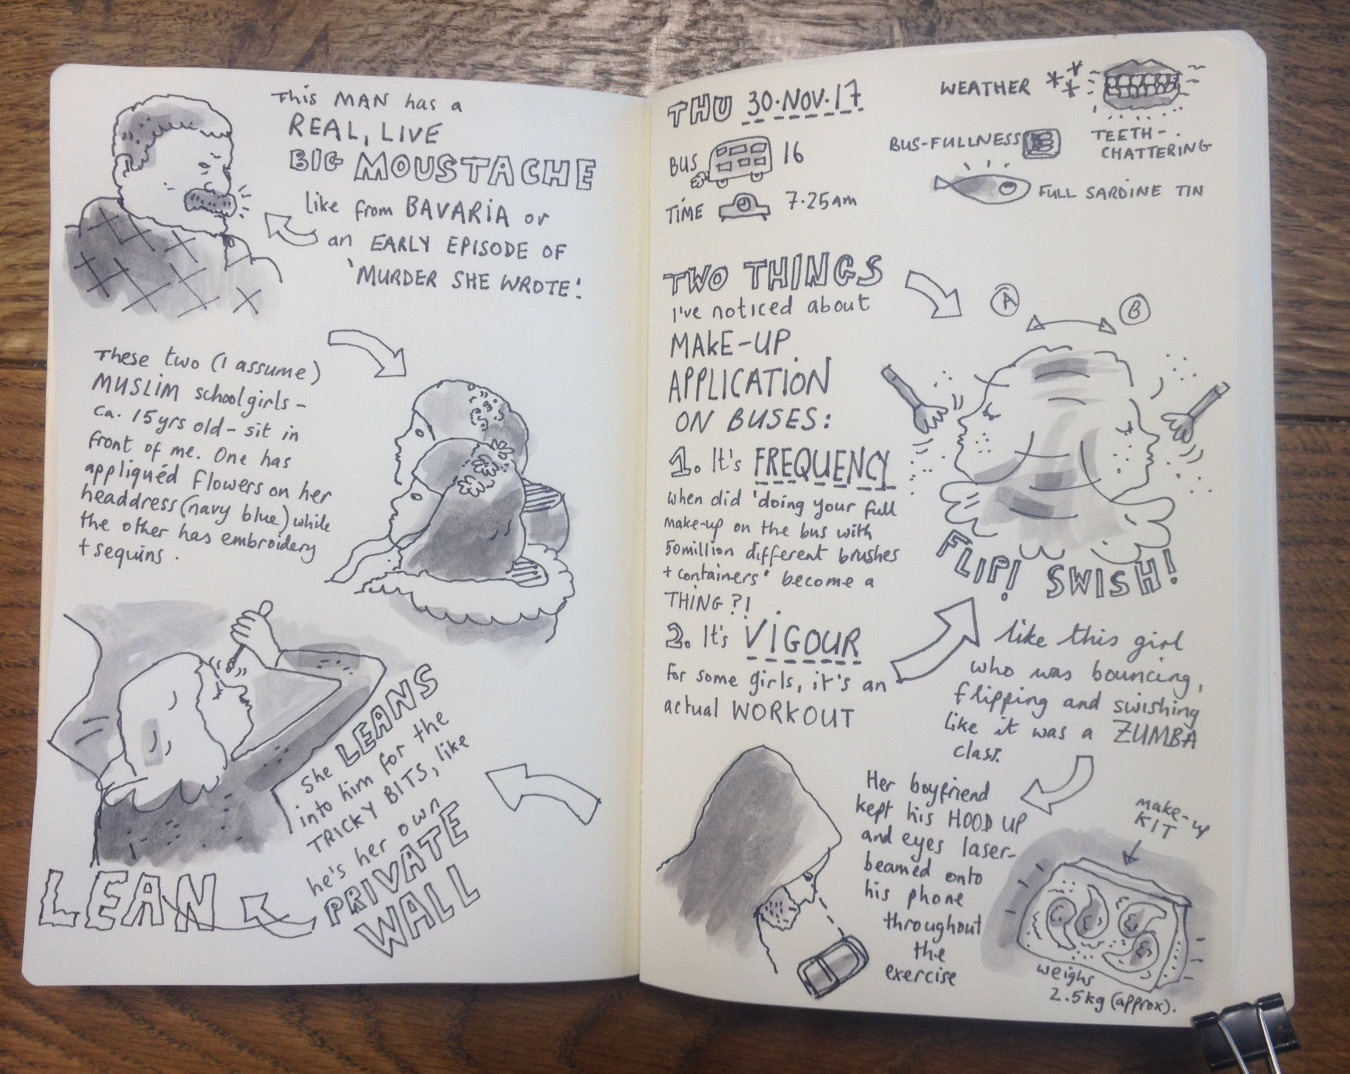 This MAN has a
REAL, LIVE
BIG MOUSTACHE
like from BAVARIA or
an EARLY EPISODE OF
'MURDER SHE WROTE'!
These two (I assume)
MUSLIM schoolgirls –
ca. 15yrs old – sit in
front of me. One has
appliquéd flowers on her
headdress (navy blue) while
the other has embroidery
+ sequins.
She LEANS
into him for the
TRICKY BITS, like
he's her own
PRIVATE
WALL
LEAN
THU 30·NOV·17
BUS 16
TIME 7·25am
WEATHER
TEETH-
CHATTERING
BUS-FULLNESS
FULL SARDINE TIN
TWO THINGS
I've noticed about
MAKE-UP
APPLICATION
ON BUSES:
1. It's FREQUENCY
when did 'doing your full
make-up on the bus with
50million different brushes
+ containers' become a
THING?!
2. It's VIGOUR
For some girls, it's an
actual WORKOUT
A B
FLIP! SWISH!
like this girl
who was bouncing,
flipping and swishing
like it was a ZUMBA
class.
Her boyfriend
kept his HOOD UP
and eyes laser-
beamed onto
his phone
throughout
the
exercise
make-up
KIT
weighs
2.5kg (approx).